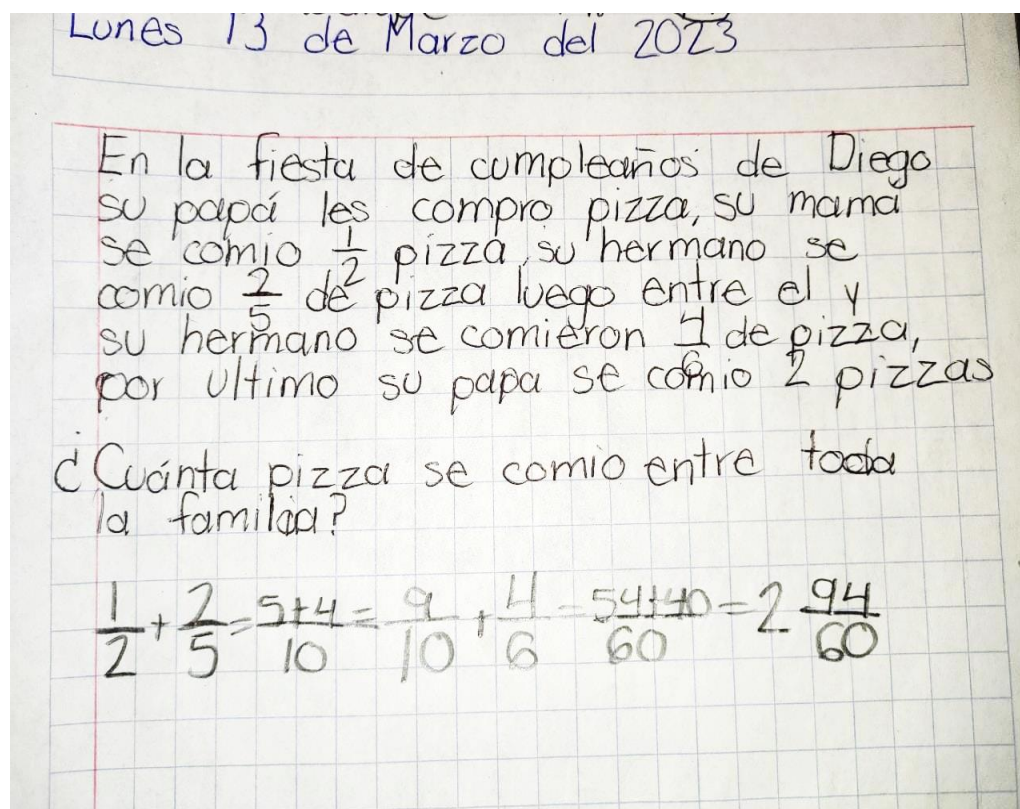 Lunes 13 de Marzo del 2023
En la fiesta de cumpleaños de Diego
su papá les compro pizza, su mama
se comio 1/2 pizza, su hermano se
comio 2/5 de pizza luego entre el y
su hermano se comieron 4/6 de pizza,
por ultimo su papa se comio 2 pizzas
¿Cuánta pizza se comio entre toda
la familia?
1/2 + 2/5 = 5+4/10 = 9/10 + 4/6 = 54+40/60 = 2 94/60